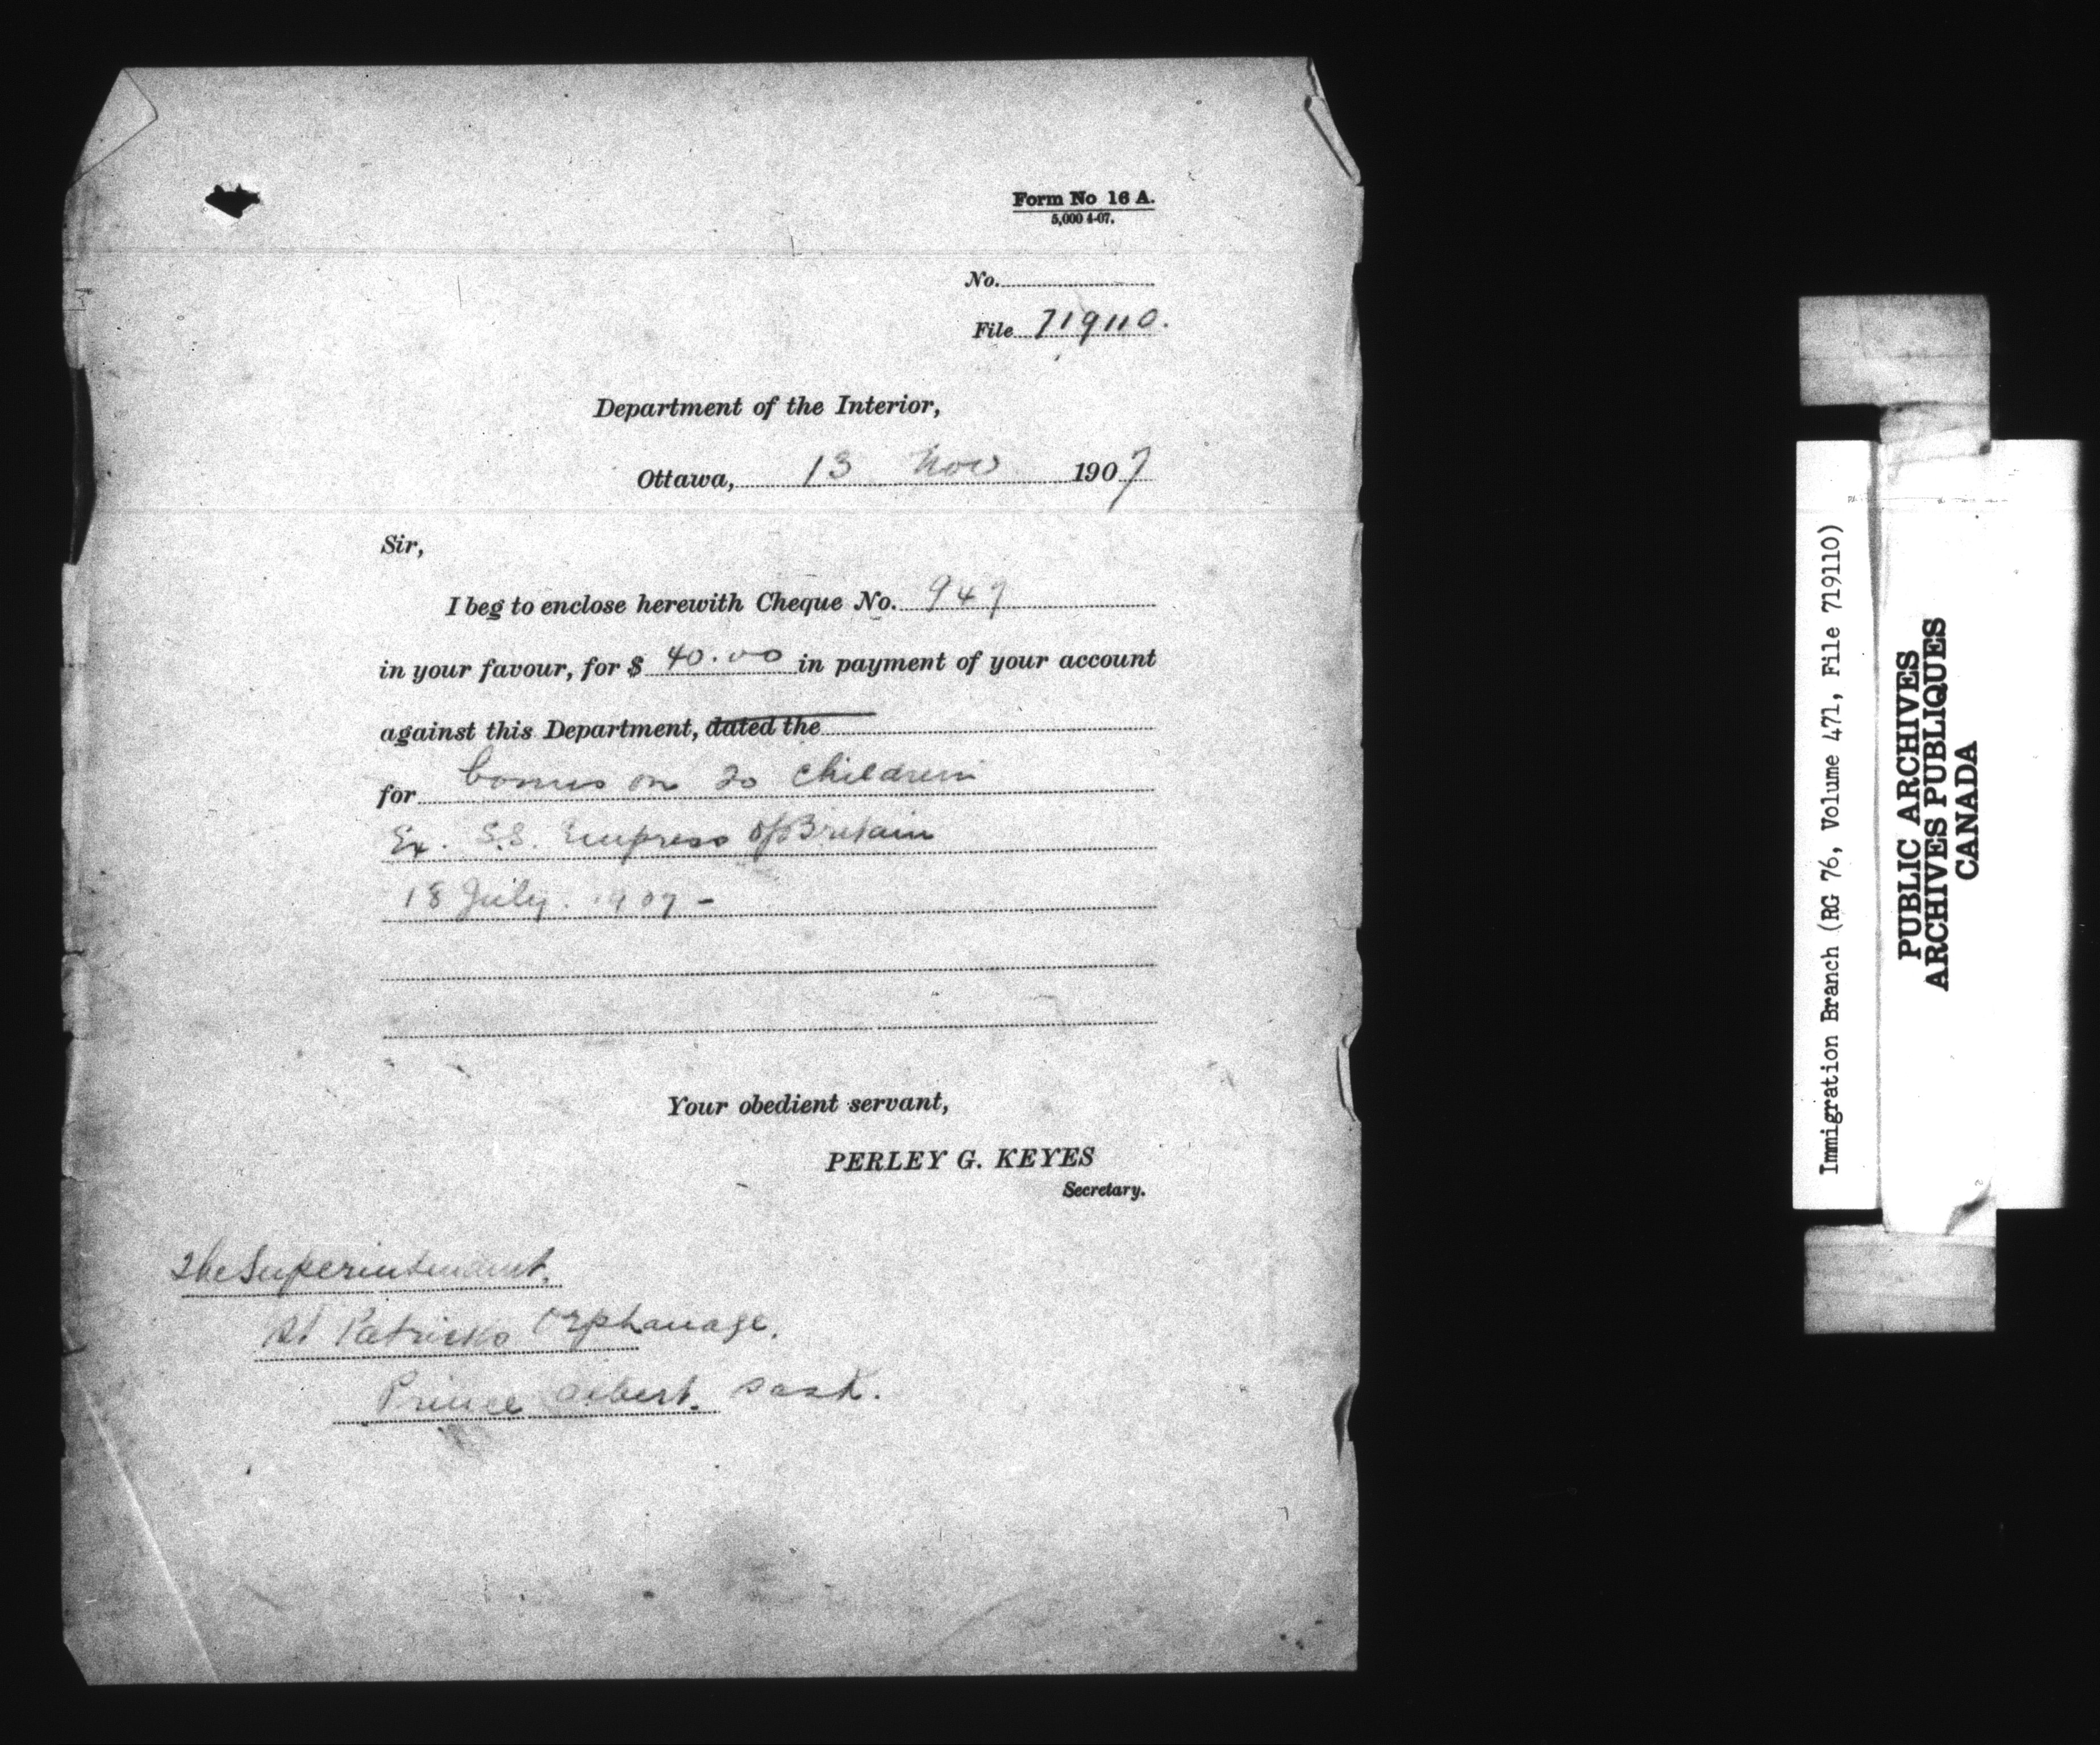 Form No 16 A.
5,000 4-07.
No.
File 719110.
Department of the Interior,
Ottawa, 13 Nov 1907
Sir,
I beg to enclose herewith Cheque No. 947
in your favour, for $ 40.00 in payment of your account
against this Department, dated the
for bonus on 20 children
Ex. S.S. Empress of Britain
18 July. 1907 -
Your obedient servant,
PERLEY G. KEYES
Secretary.
The Superintendent.
St Patricks Orphanage.
Prince Albert. Sask.
Immigration Branch (RG 76, Volume 471, File 719110)
PUBLIC ARCHIVES
ARCHIVES PUBLIQUES
CANADA